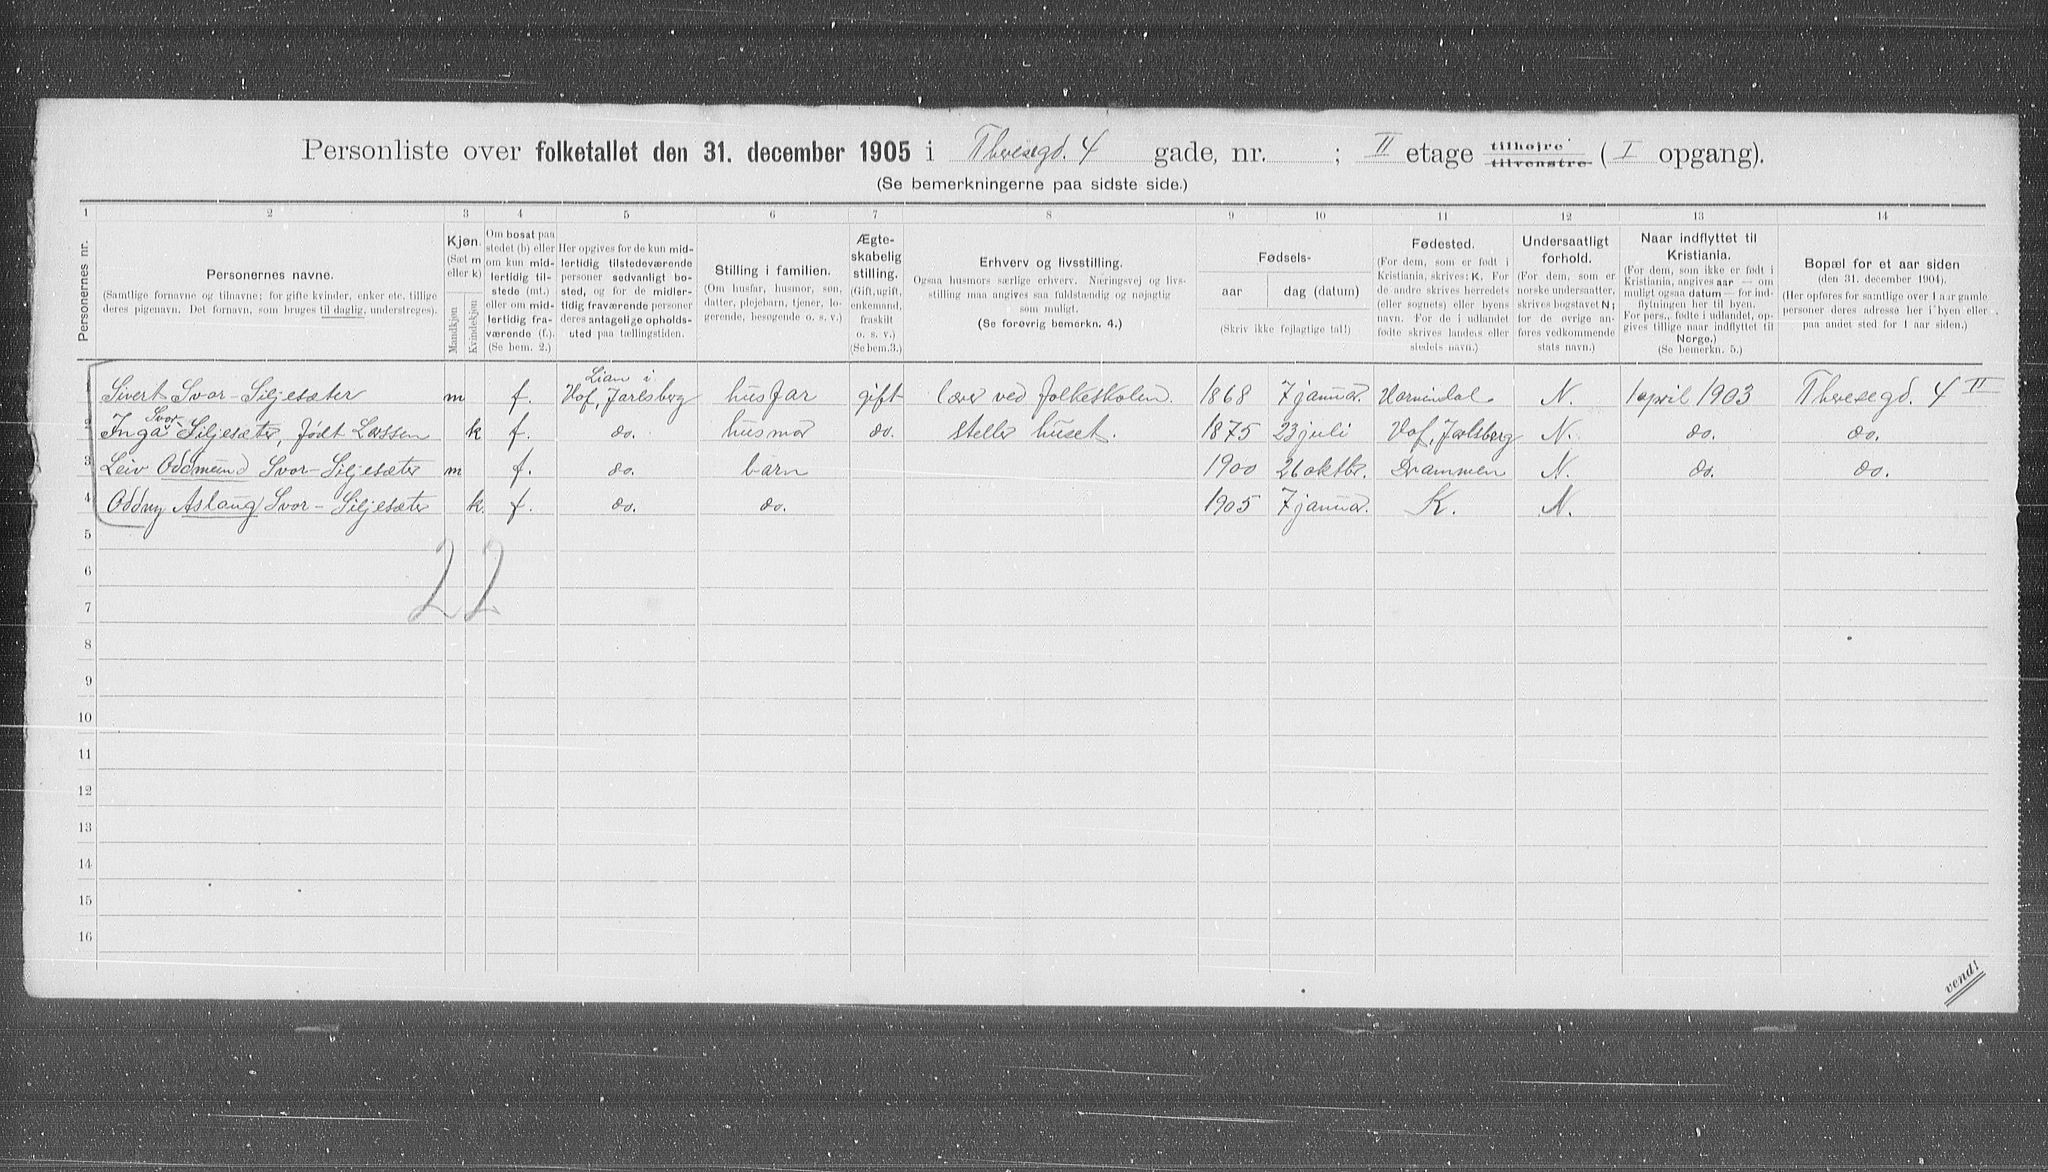 Personliste over folketallet den 31. december 1905 i Theresegd. 4 gade, nr. ; II etage tilhøjre tilvenstre ( I opgang).
(Se bemerkningerne paa sidste side.)
1 2 3 4 5 6 7 8 9 10 11 12 13 14
Personernes nr.
Personernes navne.
(Samtlige fornavne og tilnavne; for gifte kvinder, enker etc. tillige deres pigenavn. Det fornavn, som bruges til daglig, understreges).
Kjøn.
(Sæt m eller k)
Mandkjøn
Kvindekjøn
Om bosat paa stedet (b) eller om kun midlertidig tilstede (mt.) eller om midlertidig fraværende (f.). (Se bem. 2.)
Her opgives for de kun midlertidig tilstedeværende personer sedvanligt bosted, og for de midlertidig fraværende personer deres antagelige opholdssted paa tællingstiden.
Stilling i familien.
(Om husfar, husmor, søn, datter, plejebarn, tjener, logerende, besøgende o. s. v.)
Ægteskabelig stilling.
(Gift, ugift, enkemand, fraskilt o. s. v.)
(Se bem.3.)
Erhverv og livsstilling.
Ogsaa husmors særlige erhverv. Næringsvej og livsstilling maa angives saa fuldstændig og nøjagtig som muligt.
(Se forøvrig bemerkn. 4.)
Fødsels-
aar
dag (datum)
(Skriv ikke fejlagtige tal!)
Fødested.
(For dem, som er født i Kristiania, skrives: K. For de andre skrives herredets (eller sognets) eller byens navn. For de i udlandet fødte skrives landets eller stedets navn.)
Undersaatligt forhold.
(For dem, som er norske undersaatter, skrives bogstavet N; for de øvrige anføres vedkommende stats navn.)
Naar indflyttet til Kristiania.
(For dem, som ikke er født i Kristiania, angives aar — om muligt ogsaa datum — for indflytningen her til byen. For pers., fødte i udlandet, opgives tillige naar indflyttet til Norge.)
(Se bemerkn. 5.)
Bopæl for et aar siden
(den 31. december 1904).
(Her opføres for samtlige over 1 aar gamle personer deres adresse her i byen eller paa andet sted for 1 aar siden.)
1 Sivert Svor-Siljesæter m f. Lian i Hof, Jarlsberg husfar gift lærer ved folkeskolen. 1868 7 januar. Hornindal N. 1 april 1903 Theresegd. 4 II
2 Inga Svor Siljesæter, født Larssen k f. do. husmor do. steller huset. 1875 23 juli Hof, Jarlsberg N. do. do.
3 Leiv Oddmund Svor-Siljesæter m f. do. barn 1900 26 oktbr. Drammen N. do. do.
4 Oddny Aslaug Svor-Siljesæter k f. do. do. 1905 7 januar. K. N.
5
22
6
7
8
9
10
11
12
13
14
15
16
vend!